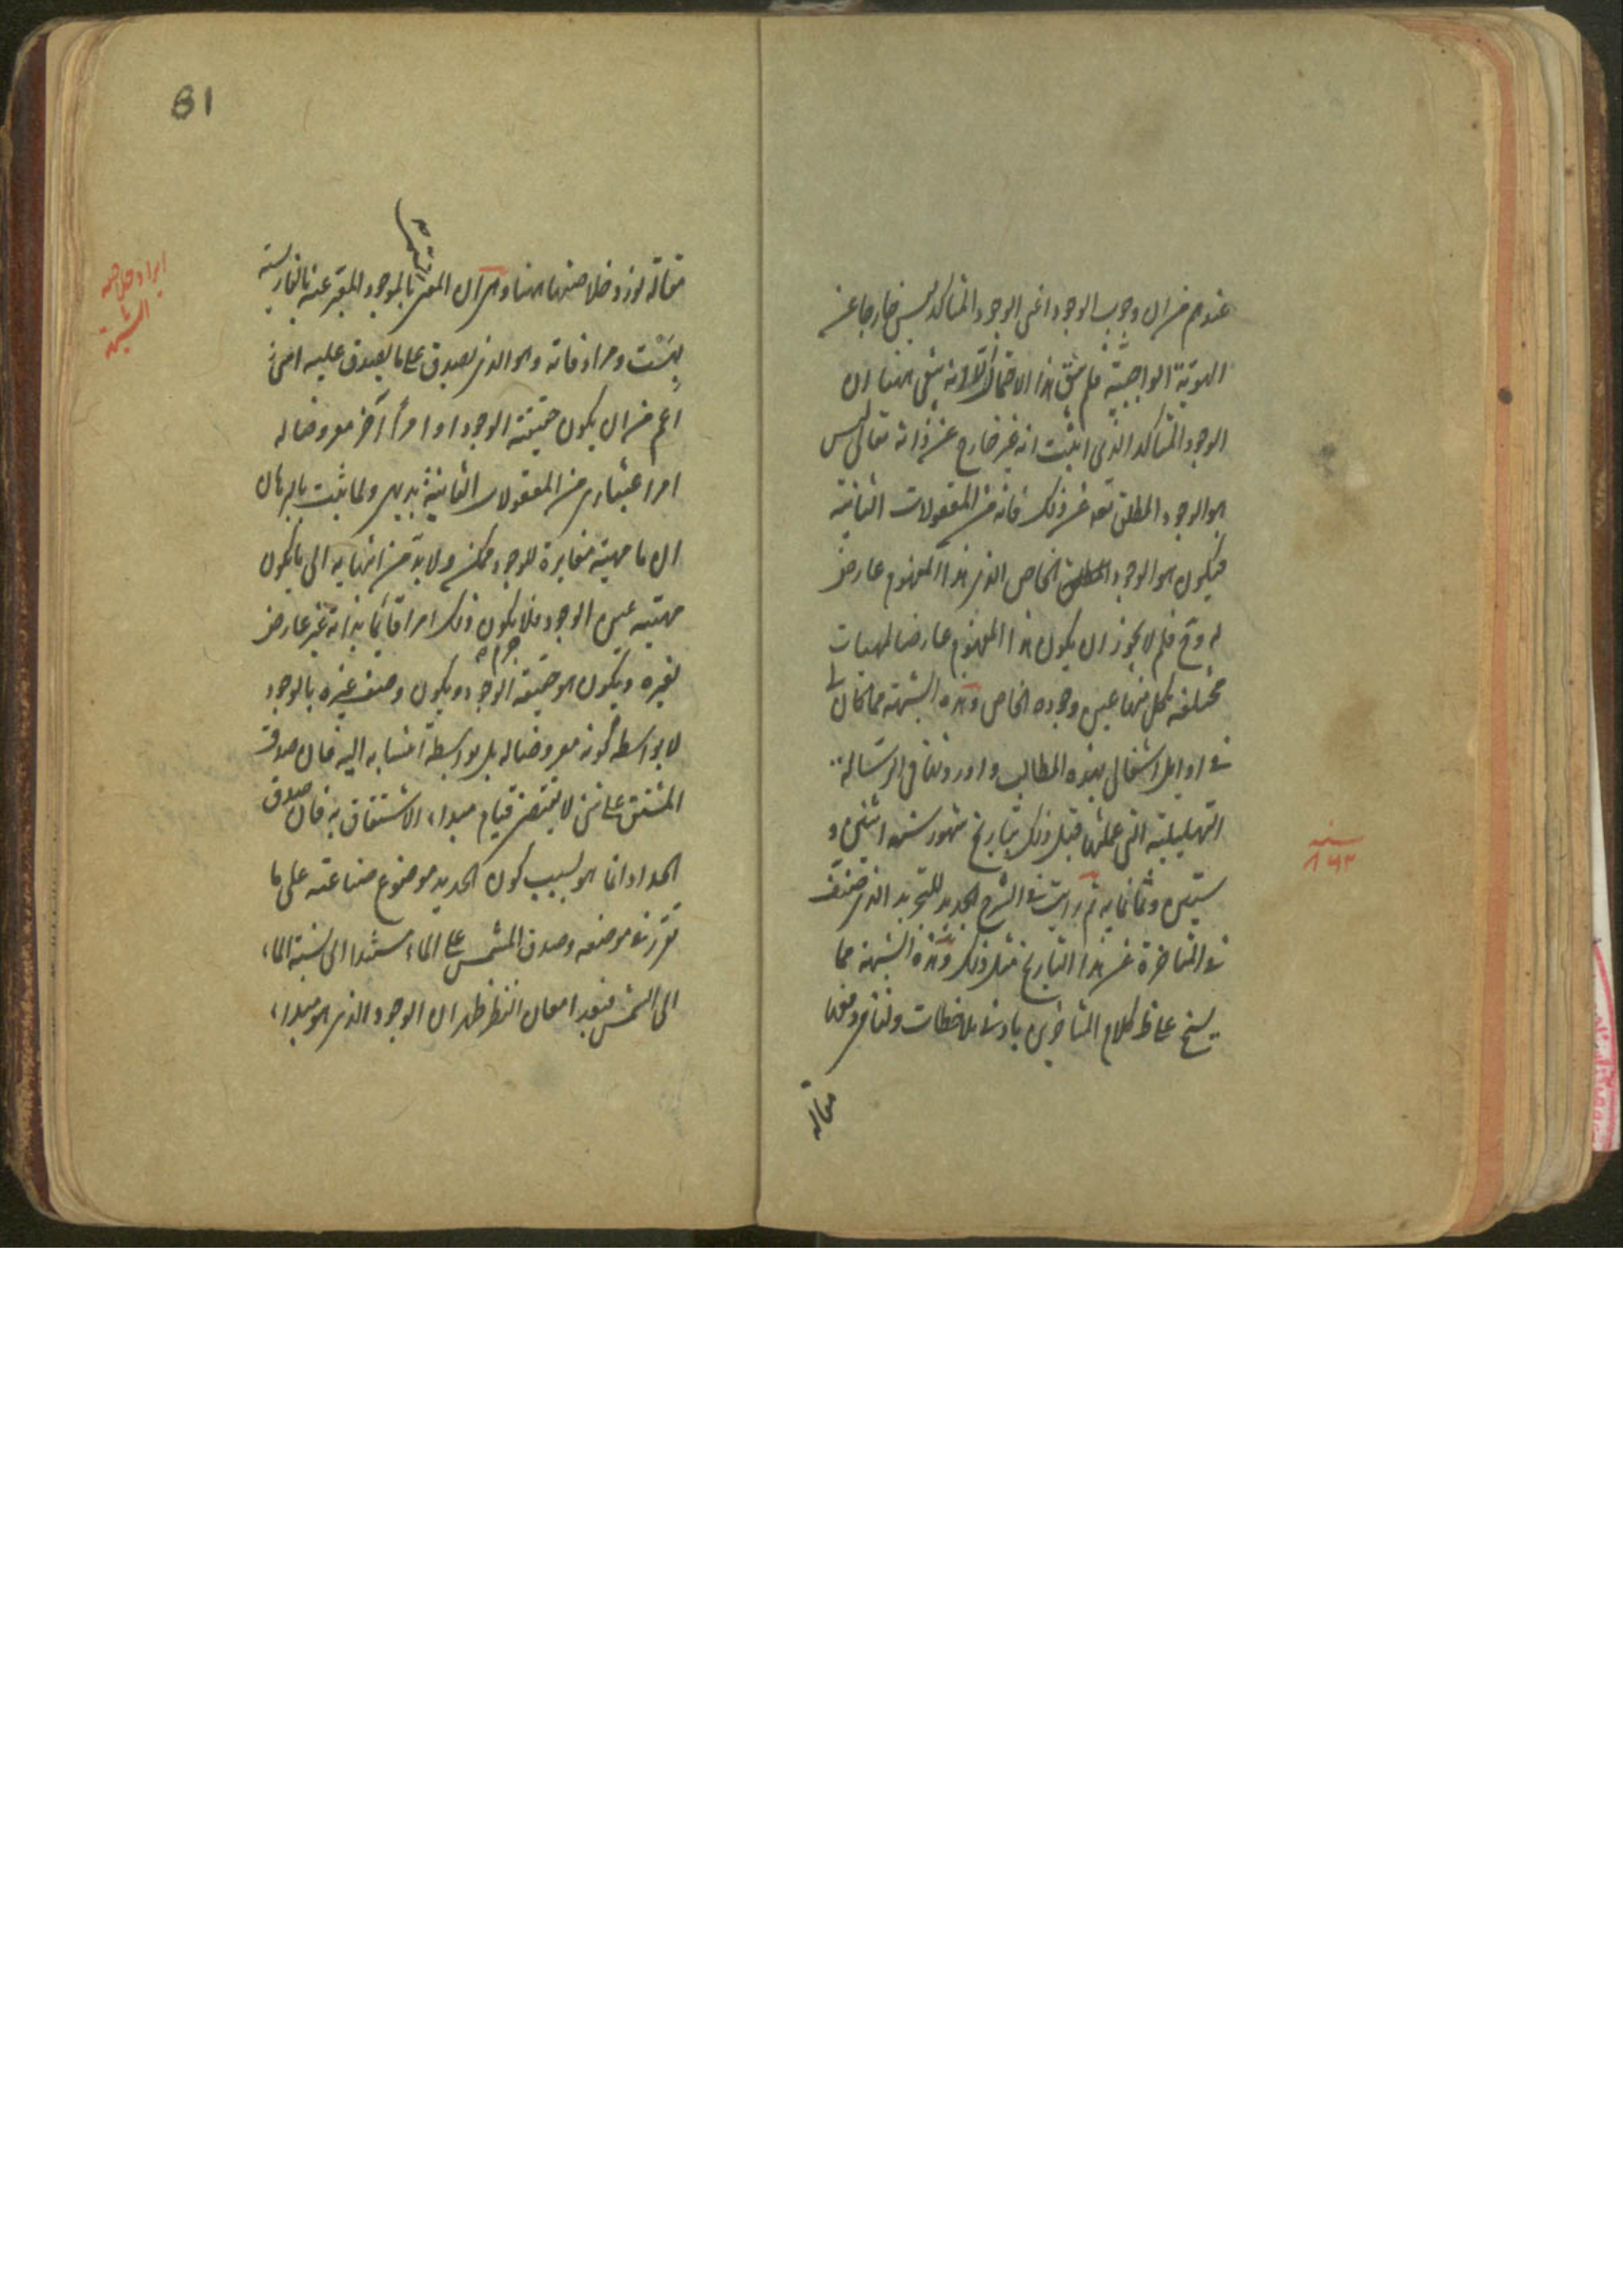 عندهم من ان وجوب الوجود اعنى الوجود المتاكد ليس خارجا عن
الهوية الواجبية فلم يبق هذا الاحتمال لانه بقى ههنا ان
الوجود المتاكد الذى اثبت انه غير خارج عن ذاته تعالى ليس
هو الوجود المطلق تعالى عن ذلك فانه من المعقولات الثانية
فيكون هو الوجود الخاص الذى هذا المفهوم عارض
له وح فلم لا يجوز ان يكون هذا المفهوم عارضا لمهيات
مختلفة كل منها عين وجوده الخاص وهذه الشبهة مما كان لى
فى اوايل اشتغالى بهذه المطالب واوردتها فى الرسالة
التهليلية التى عملتها قبل ذلك بتاريخ شهور سنة اثنى و
ستين وثمانمايه ثم رايت فى الشرح الجديد للتجريد الذى صنف
فى المتاخرة عن هذا التاريخ مثل ذلك وهذه الشبهة مما
يسنح على ظ كلام المتاخرين بادنى ملاحظات ولنا فى دفعها
مقالة
سنه
٨٦٢
81
مقالة نورد خلاصتها ههنا وهى ان المعنى بالموجود المعبر عنه بالفارسية
بهست ومرادفاته وهو الذى يصدق على ما يصدق عليه امر
اعم من ان يكون حقيقة الوجود او امرا آخر معروضا له
امر اعتبارى من المعقولات الثانية بديهى ولما ثبت بالبرهان
ان ما مهيته مغايرة للوجود ممكن ولا بد من انتهايه الى ما يكون
مهيته عين الوجود فلا يكون ذلك امرا قايما بذاته غير عارض
لغيره ويكون هو حقيقة الوجود ويكون وصف غيره بالوجود
لا بواسطه كونه معروضا له بل بواسطة انتسابه اليه فان صدق
المشتق على شئ لا يقتضى قيام مبداء الاشتقاق به فان صدق
الحداد انما هو بسبب كون الحديد موضوع صناعته على ما
تقرر فى موضعه وصدق المشمس على الماء مستندا الى نسبة الماء
الى الشمس فبعد امعان النظر ظهر ان الوجود الذى هو مبداء
ايراد وحل
الشبهة